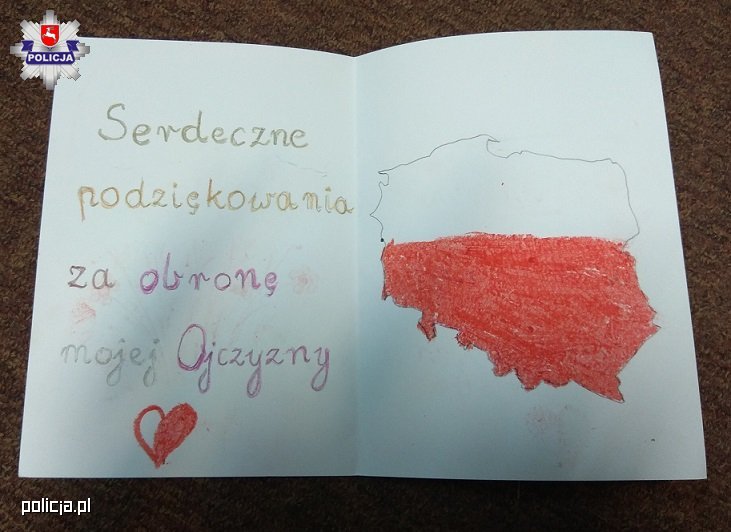 POLICJA
Serdeczne
podziękowania
za obronę
mojej Ojczyzny
policja.pl